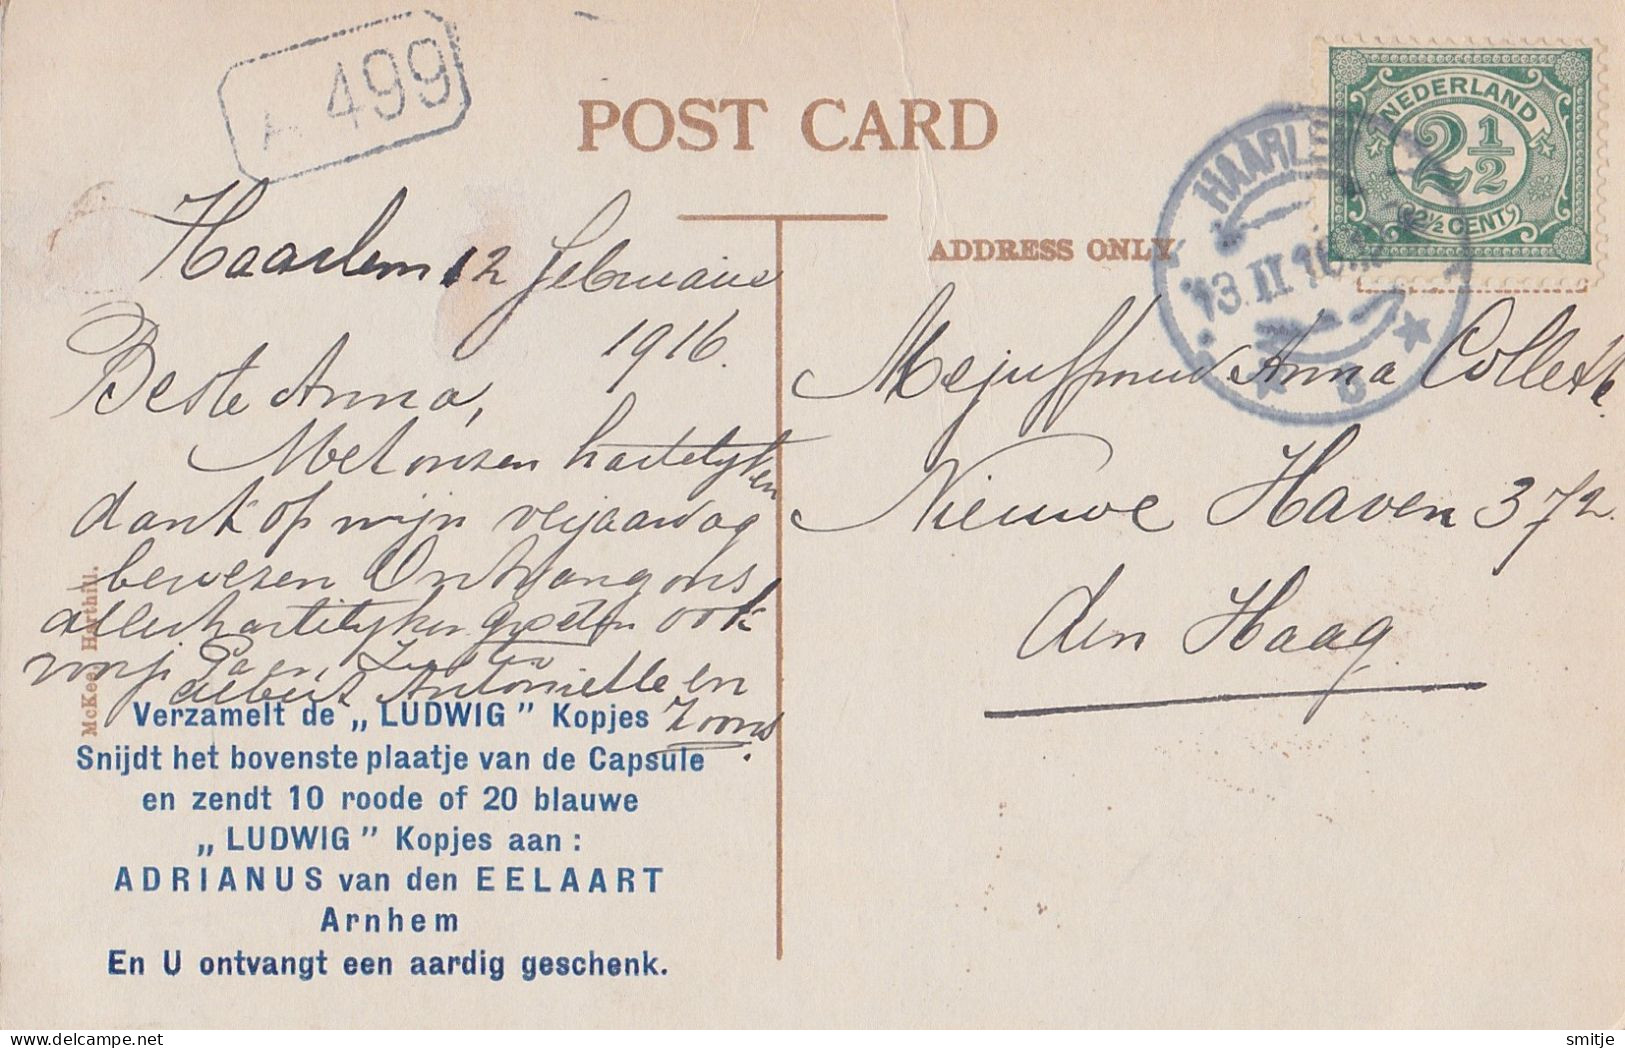 A 499
POST CARD
NEDERLAND
2 1/2
2½ CENT
HAARLE
13.II.16
ADDRESS ONLY
Haarlem 12 Februarie
1916.
Beste Anna,
Met onzen hartelijken
dank op mijn verjaardag
bewezen Ontvang ons
allerhartelijken groeten ook
Albert Antonielle en
Zoons.
Mejuffrouw Anna Collette
Nieuwe Haven 372.
den Haag
McKee, Harthill.
Verzamelt de „LUDWIG” Kopjes
Snijdt het bovenste plaatje van de Capsule
en zendt 10 roode of 20 blauwe
„LUDWIG” Kopjes aan:
ADRIANUS van den EELAART
Arnhem
En U ontvangt een aardig geschenk.
smitje